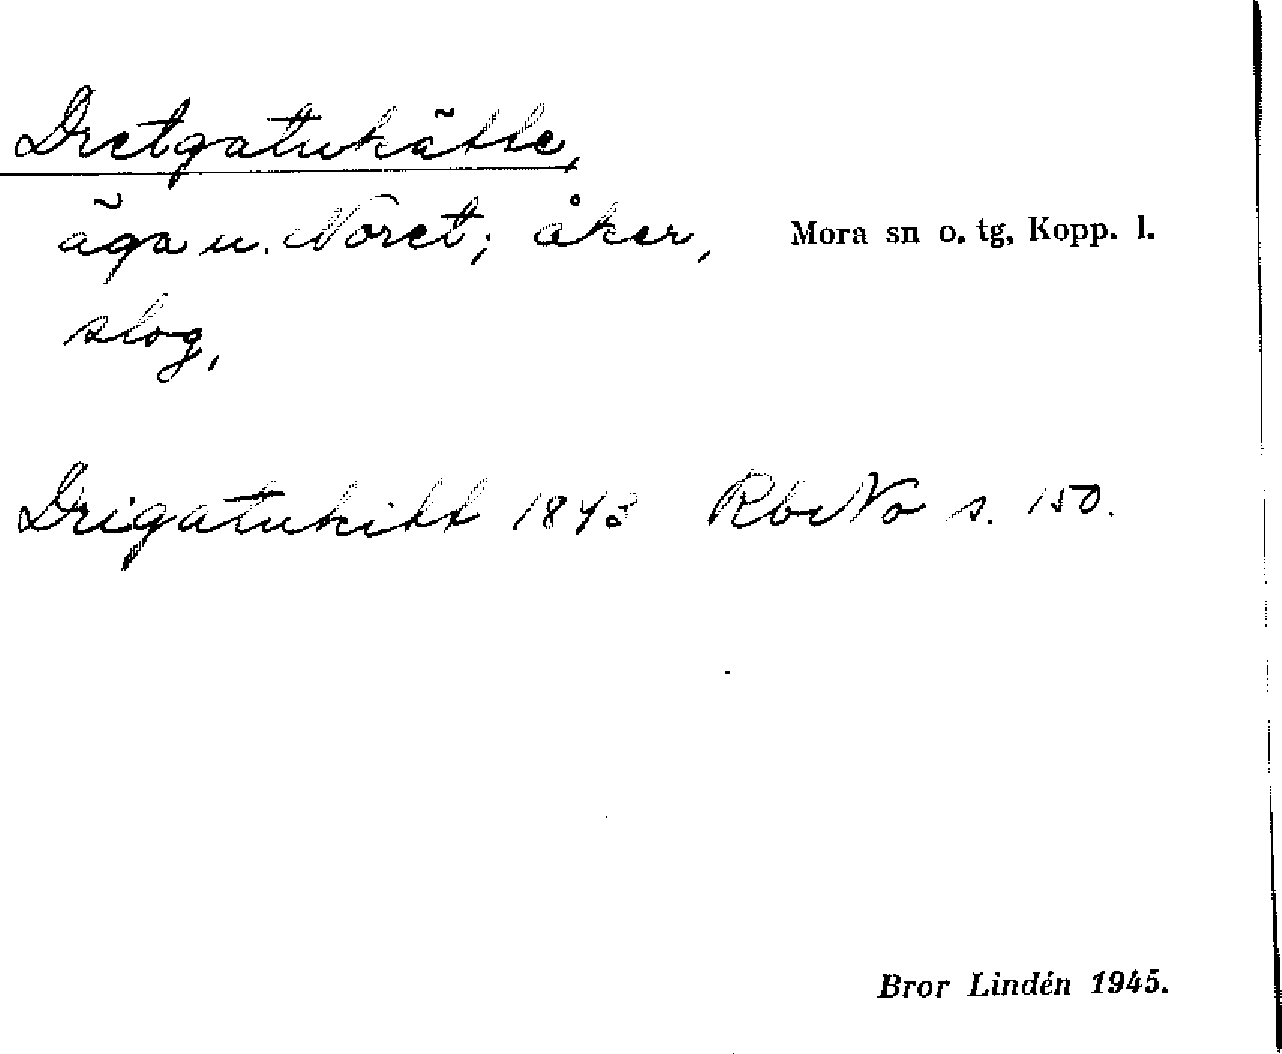 Dretgatukätte,
äga u. Noret; åker, Mora sn o. tg, Kopp. l.
slog,
Drigatukitt 1843 RbNo s. 150.
Bror Lindén 1945.